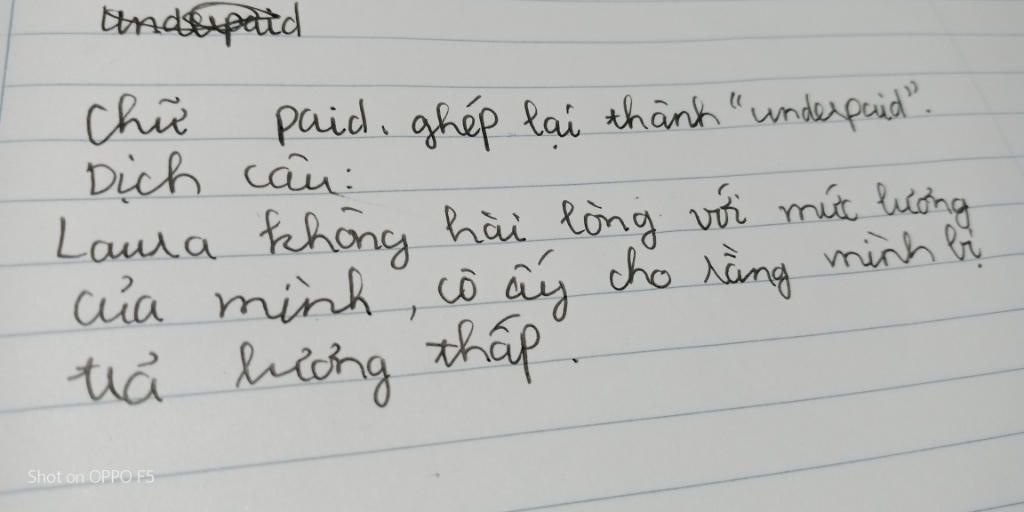 underpaid
Chữ paid. ghép lại thành "underpaid".
Dịch câu:
Laura không hài lòng với mức lương
của mình, cô ấy cho rằng mình bị
trả lương thấp.
Shot on OPPO F5